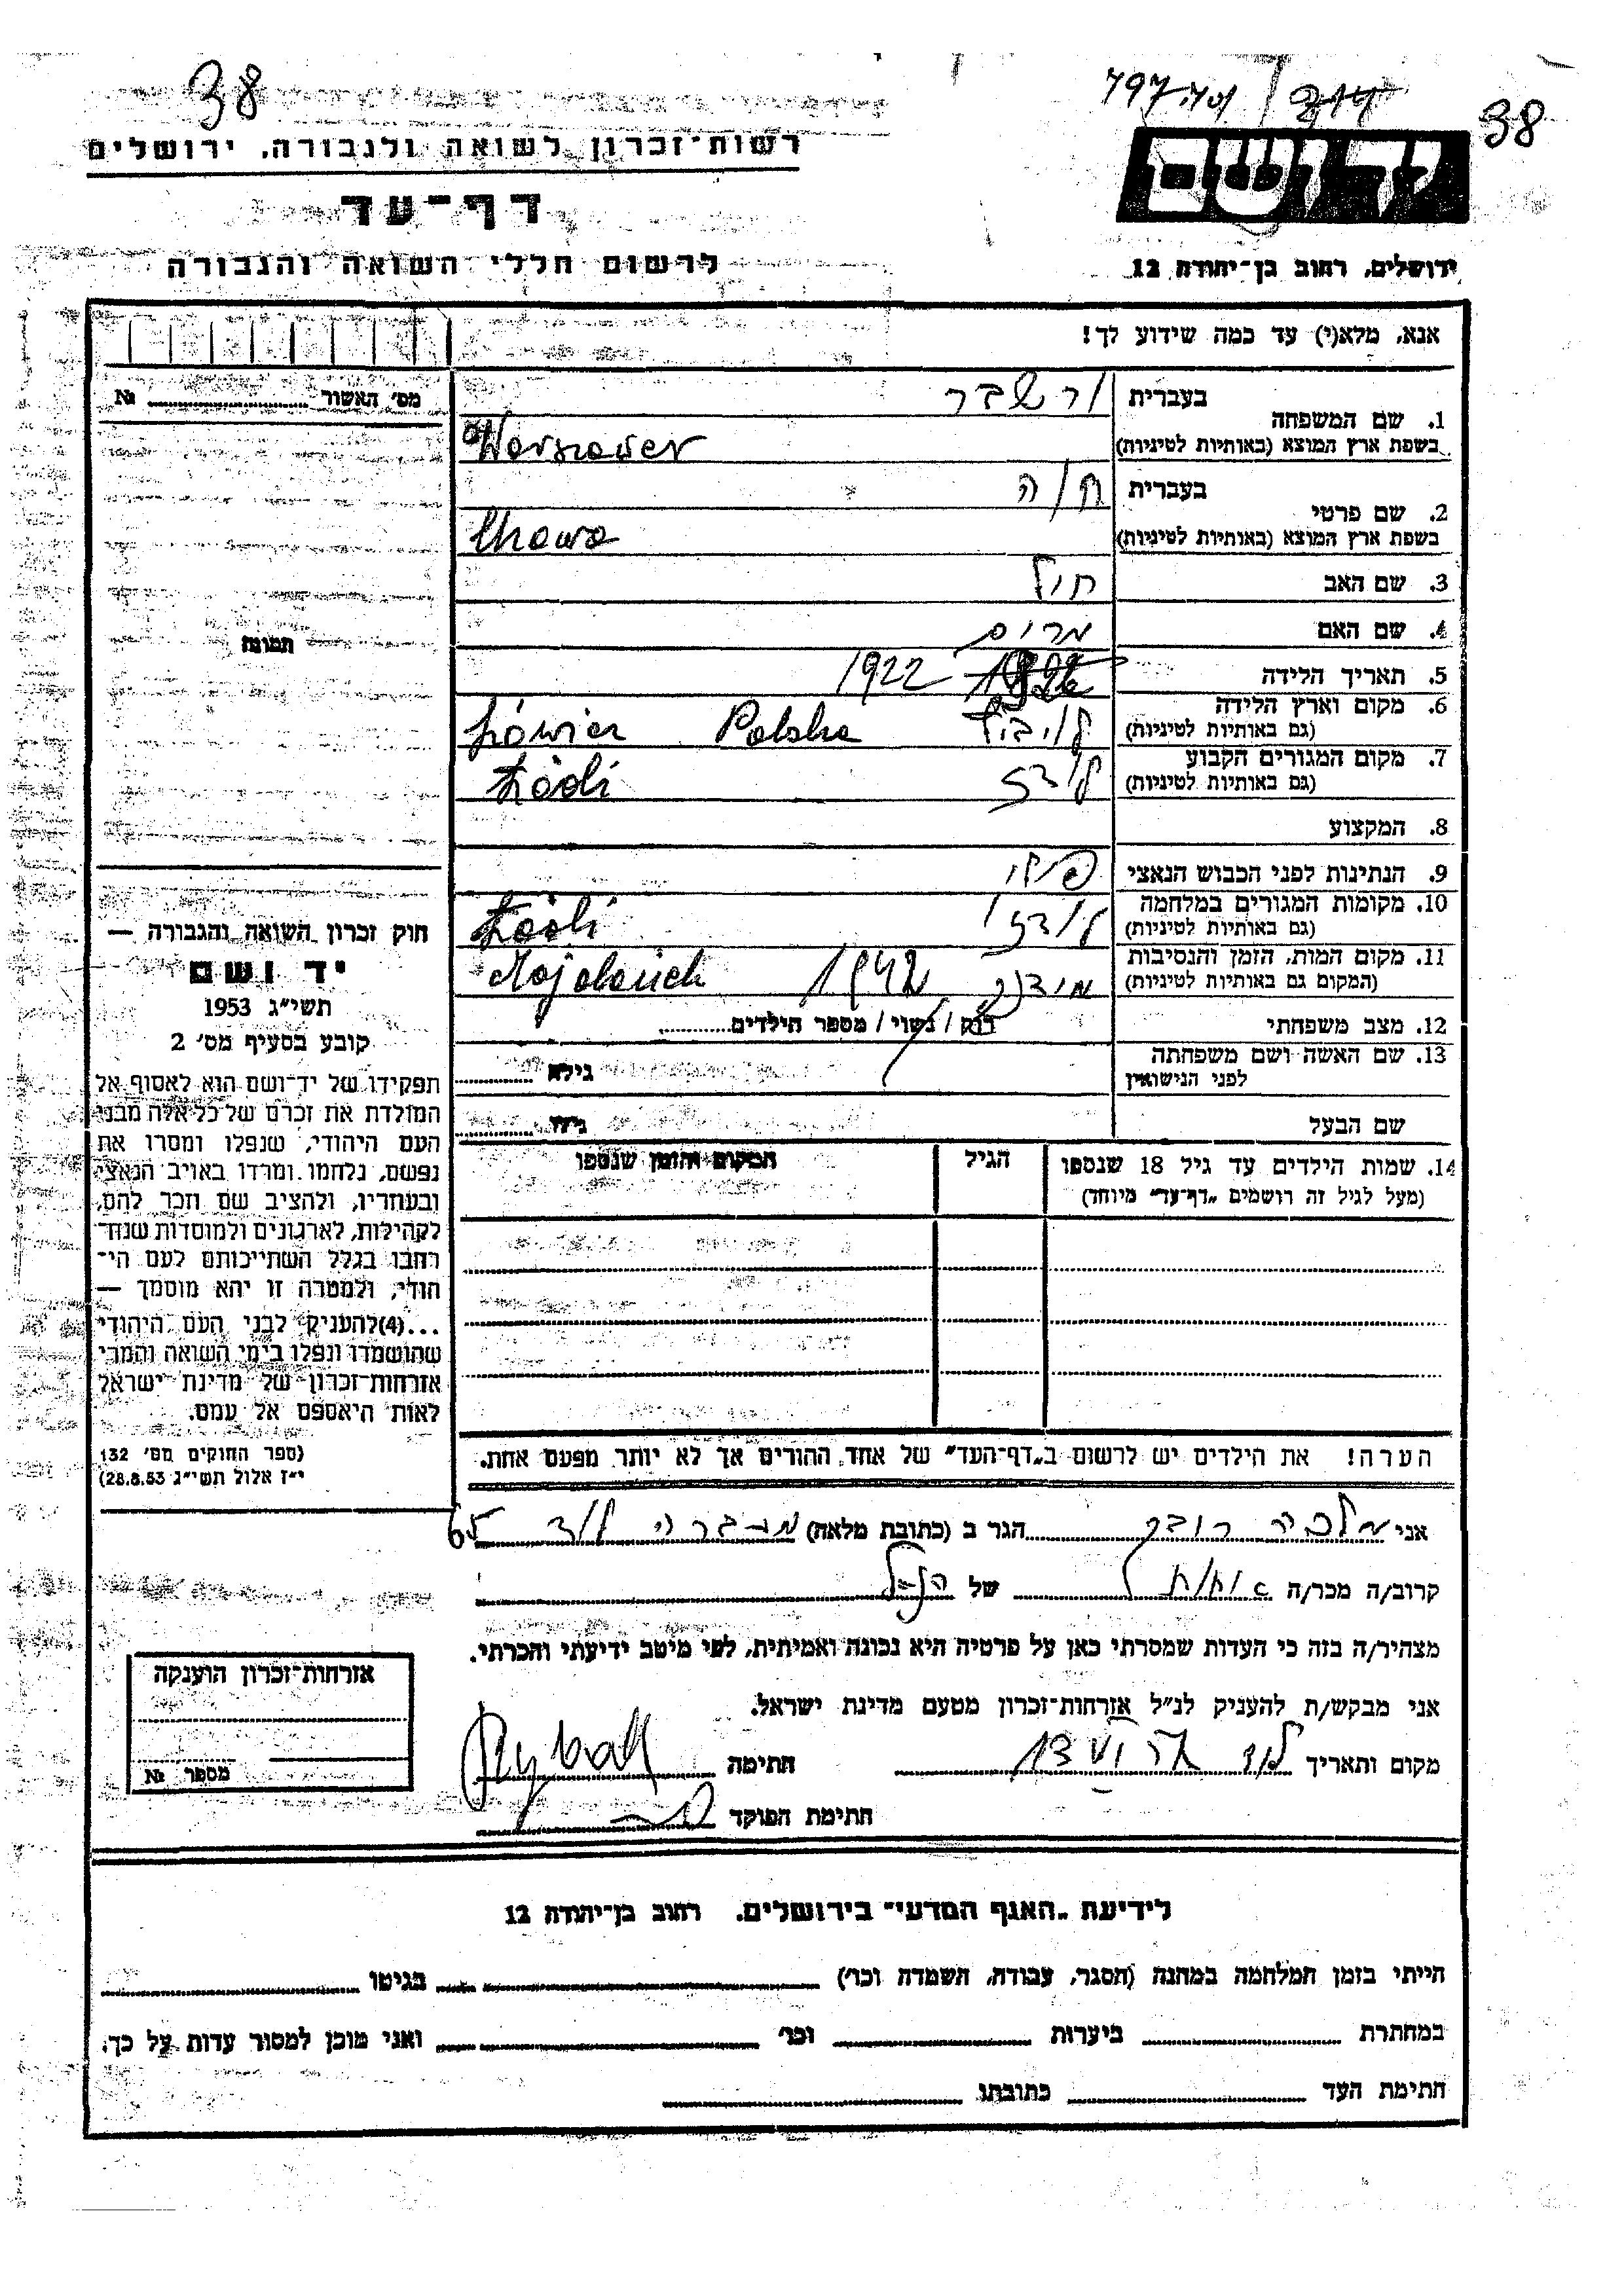 38
797 / 701
38
רשות-זכרון לשואה ולגבורה, ירושלים
יד ושם
דף-עד
לרשום חללי השואה והגבורה
ירושלים, רחוב בן-יהודה 12
אנא, מלא(י) עד כמה שידוע לך!
מס' האשור № 
1. שם המשפחה
בעברית ורשבר
בשפת ארץ המוצא (באותיות לטיניות) Warszawer
2. שם פרטי
בעברית חוה
בשפת ארץ המוצא (באותיות לטיניות) Chawa
3. שם האב
4. שם האם מרים
תמונה
5. תאריך הלידה 1922
6. מקום וארץ הלידה
(גם באותיות לטיניות) לוביץ Polska Łówicz
7. מקום המגורים הקבוע
(גם באותיות לטיניות) לודז Łódź
8. המקצוע
9. הנתינות לפני הכבוש הנאצי פולני
10. מקומות המגורים במלחמה
(גם באותיות לטיניות) לודז' Łódź
11. מקום המות, הזמן והנסיבות
(המקום גם באותיות לטיניות) מידנק 1942 Majdanek
12. מצב משפחתי רוק / נשוי / מספר הילדים
13. שם האשה ושם משפחתה
לפני הנישואין גילא
שם הבעל גילו
14. שמות הילדים עד גיל 18 שנספו הגיל המקום והזמן שנספו
(מעל לגיל זה רושמים "דף-עד" מיוחד)
הערה! את הילדים יש לרשום ב"דף-העד" של אחד ההורים אך לא יותר מפעם אחת.
חוק זכרון השואה והגבורה —
יד ושם
תשי"ג 1953
קובע בסעיף מס' 2
תפקידו של יד-ושם הוא לאסוף אל
המולדת את זכרם של כל אלה מבני
העם היהודי, שנפלו ומסרו את
נפשם, נלחמו ומרדו באויב הנאצי
ובעוזריו, ולהציב שם וזכר להם,
לקהילות, לארגונים ולמוסדות שנח־
רבו בגלל השתייכותם לעם הי־
הודי, ולמטרה זו יהא מוסמך —
...(4) להעניק לבני העם היהודי
שהושמדו ונפלו בימי השואה והמרי
אזרחות-זכרון של מדינת ישראל
לאות היאספם אל עמם.
(ספר החוקים מס' 132
י"ז אלול תשי"ג 28.8.53)
אני מלכה הגר ב (כתובת מלאה) מעברה לוד 65
קרוב/ה מכר/ה אחות של הנ"ל
מצהיר/ה בזה כי העדות שמסרתי כאן על פרטיה היא נכונה ואמיתית, לפי מיטב ידיעתי והכרתי.
אני מבקש/ת להעניק לנ"ל אזרחות-זכרון מטעם מדינת ישראל.
מקום ותאריך לוד חתימה
חתימת הפוקד
אזרחות-זכרון הוענקה
מספר №
לידיעת "האגף המדעי" בירושלים, רחוב בן-יהודה 12
הייתי בזמן המלחמה במחנה (הסגר, עבודה, השמדה וכו') בגיטו
במחתרת ביערות וכו' ואני מוכן למסור עדות על כך.
חתימת העד כתובתו